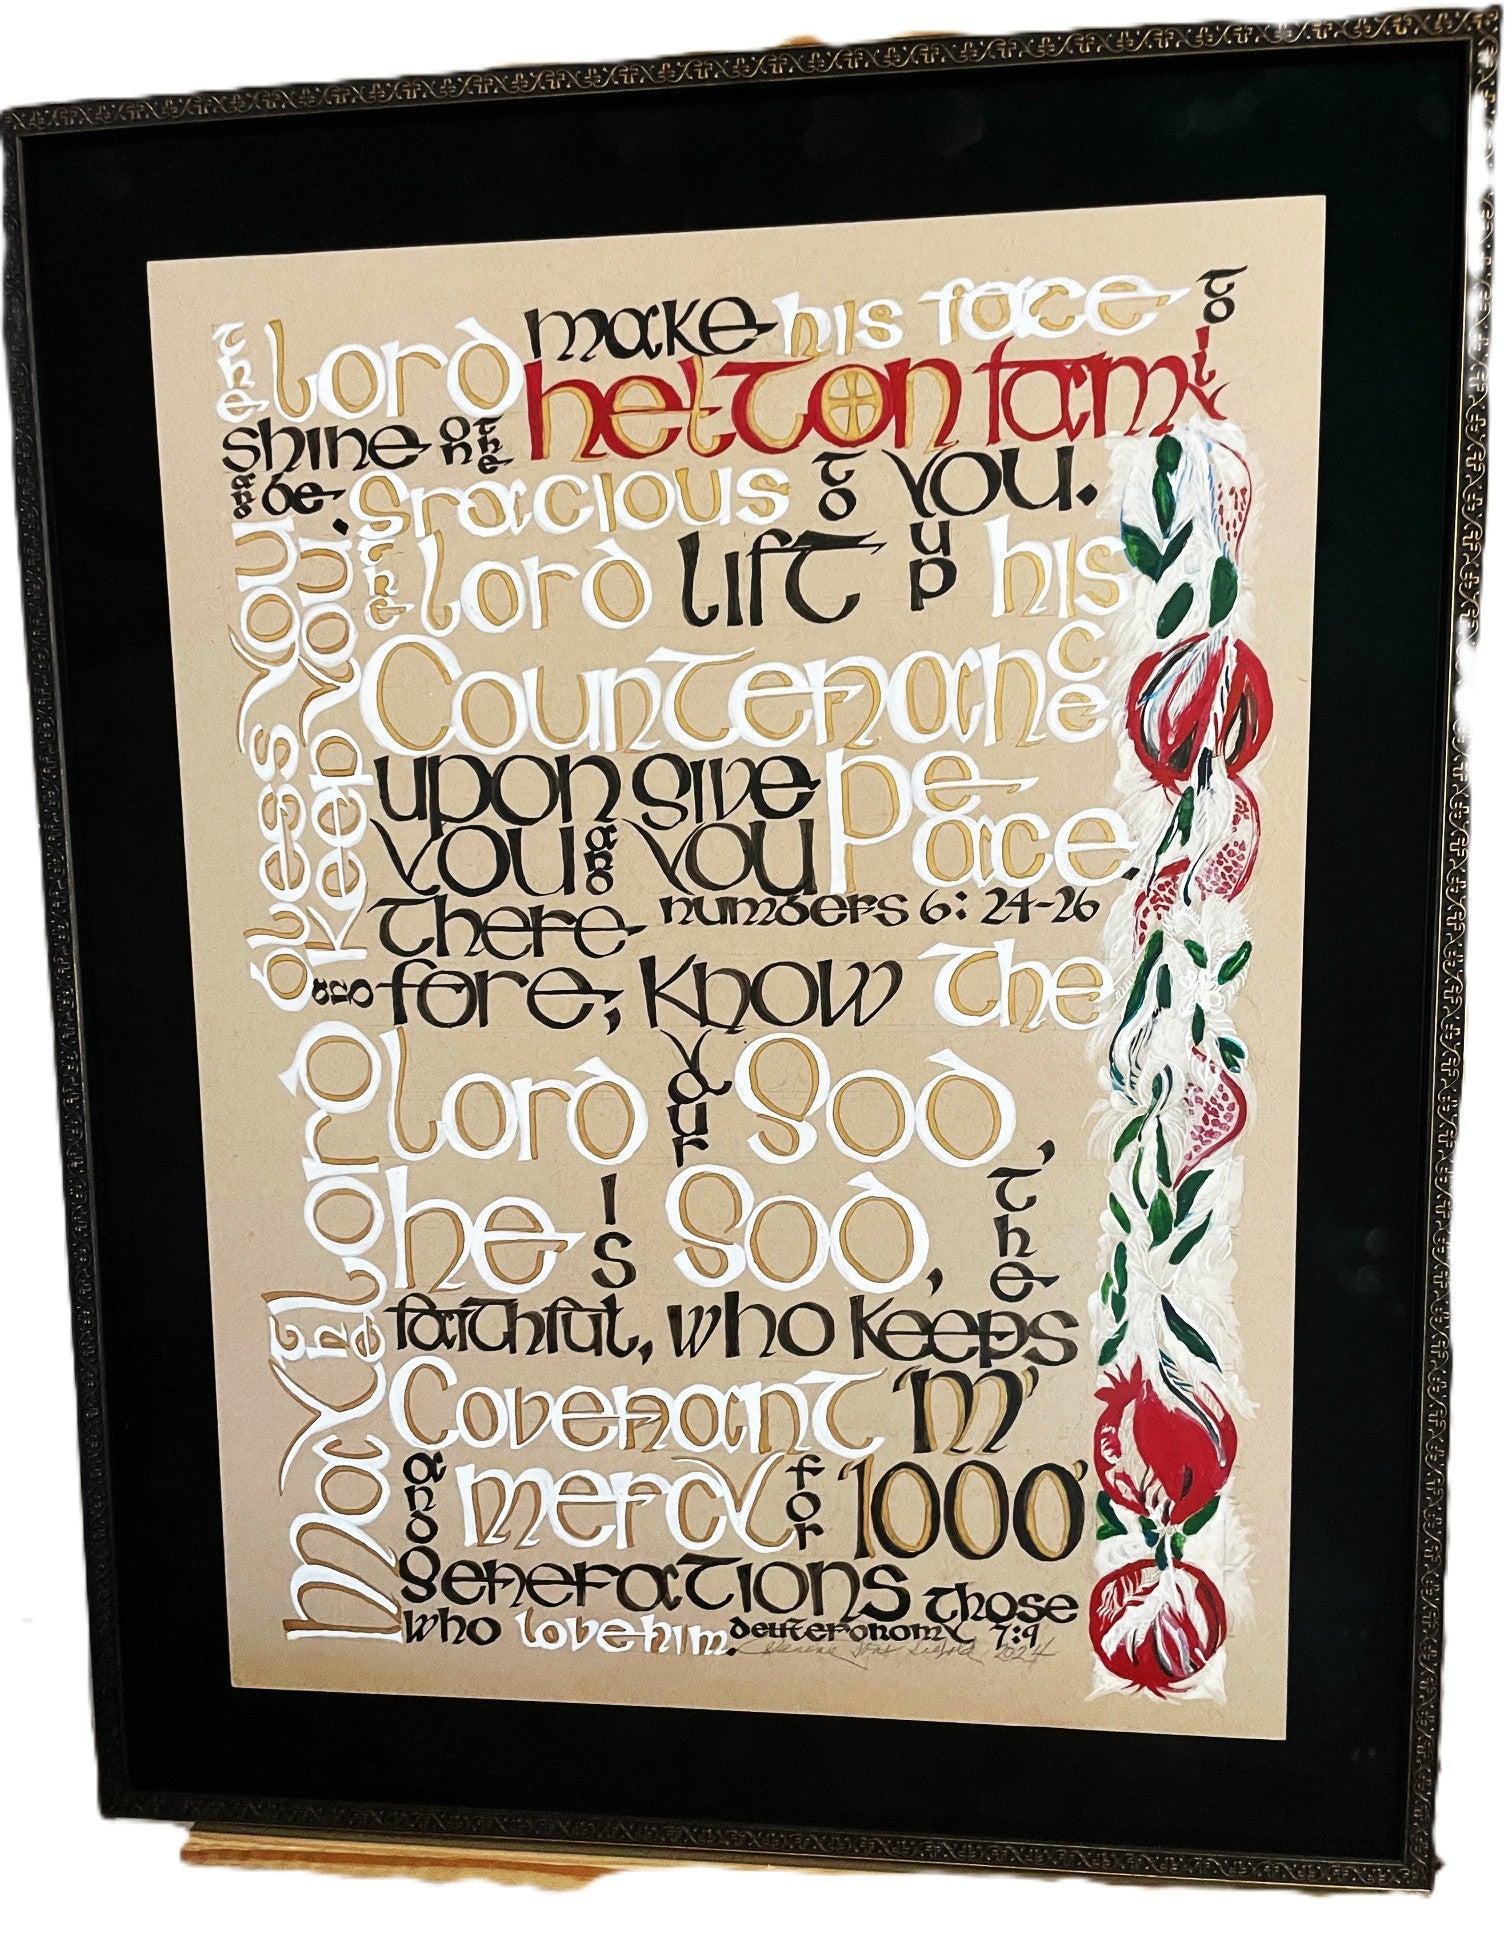 may the Lord bless you
and keep you.
the Lord make his face to
shine on the helton family
and be gracious to you.
the Lord lift up his
Countenance
upon you and give you peace.
numbers 6: 24-26
there
fore; know the
Lord your God,
he is God, the
faithful, who keeps
Covenant 'M'
and mercy for '1000'
generations those
who love him. deuteronomy 7:9
2024